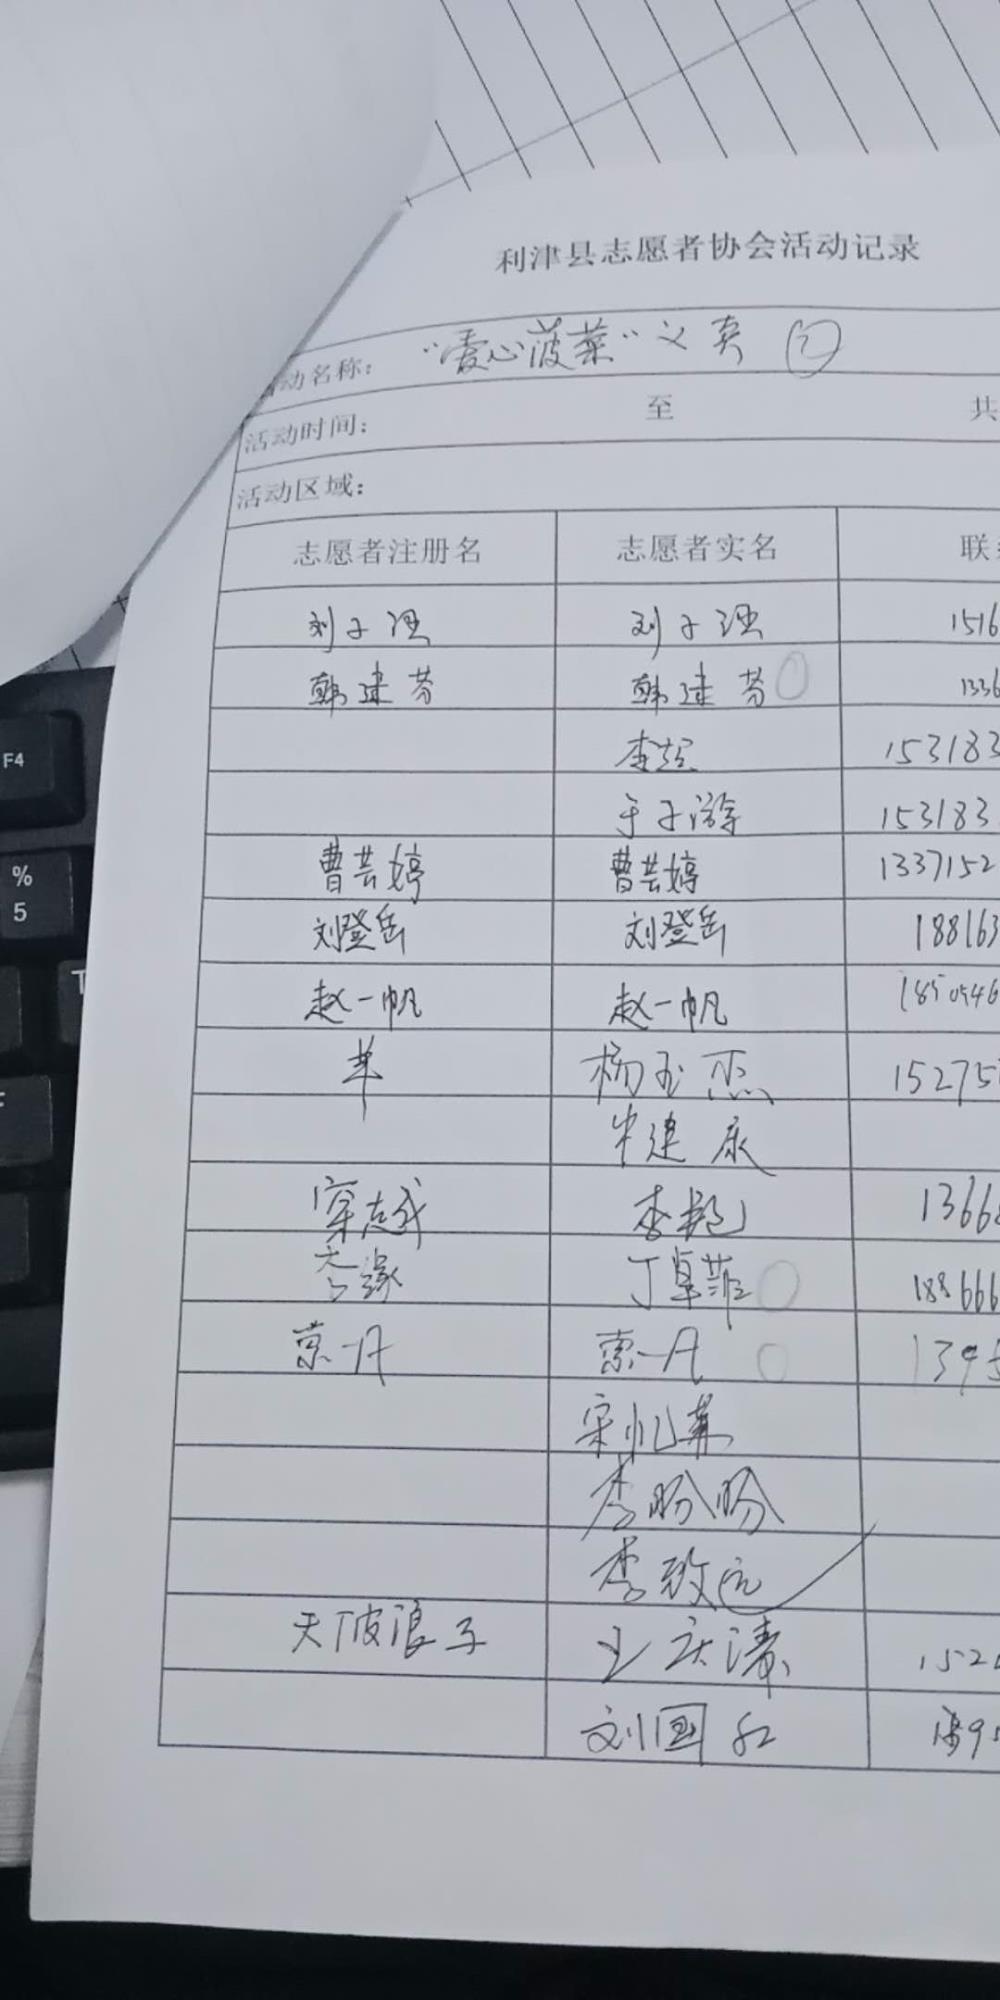 利津县志愿者协会活动记录
动名称: "爱心菠菜"义卖 ②
活动时间: 至 共
活动区域:
志愿者注册名 志愿者实名 联
刘子强 刘子强 1516
韩建芳 韩建芳 1336
153183
于子游 153183
曹芸婷 曹芸婷 1337152
刘登岳 刘登岳 188163
赵一帆 赵一帆 1850546
杨玉杰 15275
牛建康
穿越 李艳 1366
杏缘 丁卓菲 188666
索一丹 索一丹 1395
宋忆莱
李盼盼
李致远
天 浪子 王庆清 152
刘国红
F4
%
5